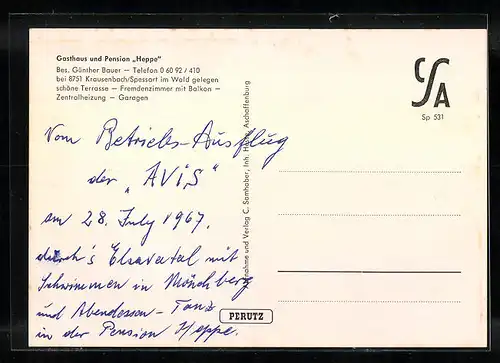 Gasthaus und Pension „Heppe"
Bes. Günther Bauer — Telefon 0 60 92 / 410
bei 8751 Krausenbach/Spessart im Wald gelegen
schöne Terrasse — Fremdenzimmer mit Balkon —
Zentralheizung — Garagen
Vom Betriebs-Ausflug
der „AVIS"
am 28. July 1967.
durch's Elsavatal mit
Schwimmen in Mönchberg
und Abendessen - Tanz
in der Pension Heppe.
Aufnahme und Verlag C. Samhaber, Inh. Aschaffenburg
PERUTZ
CSA
Sp 531